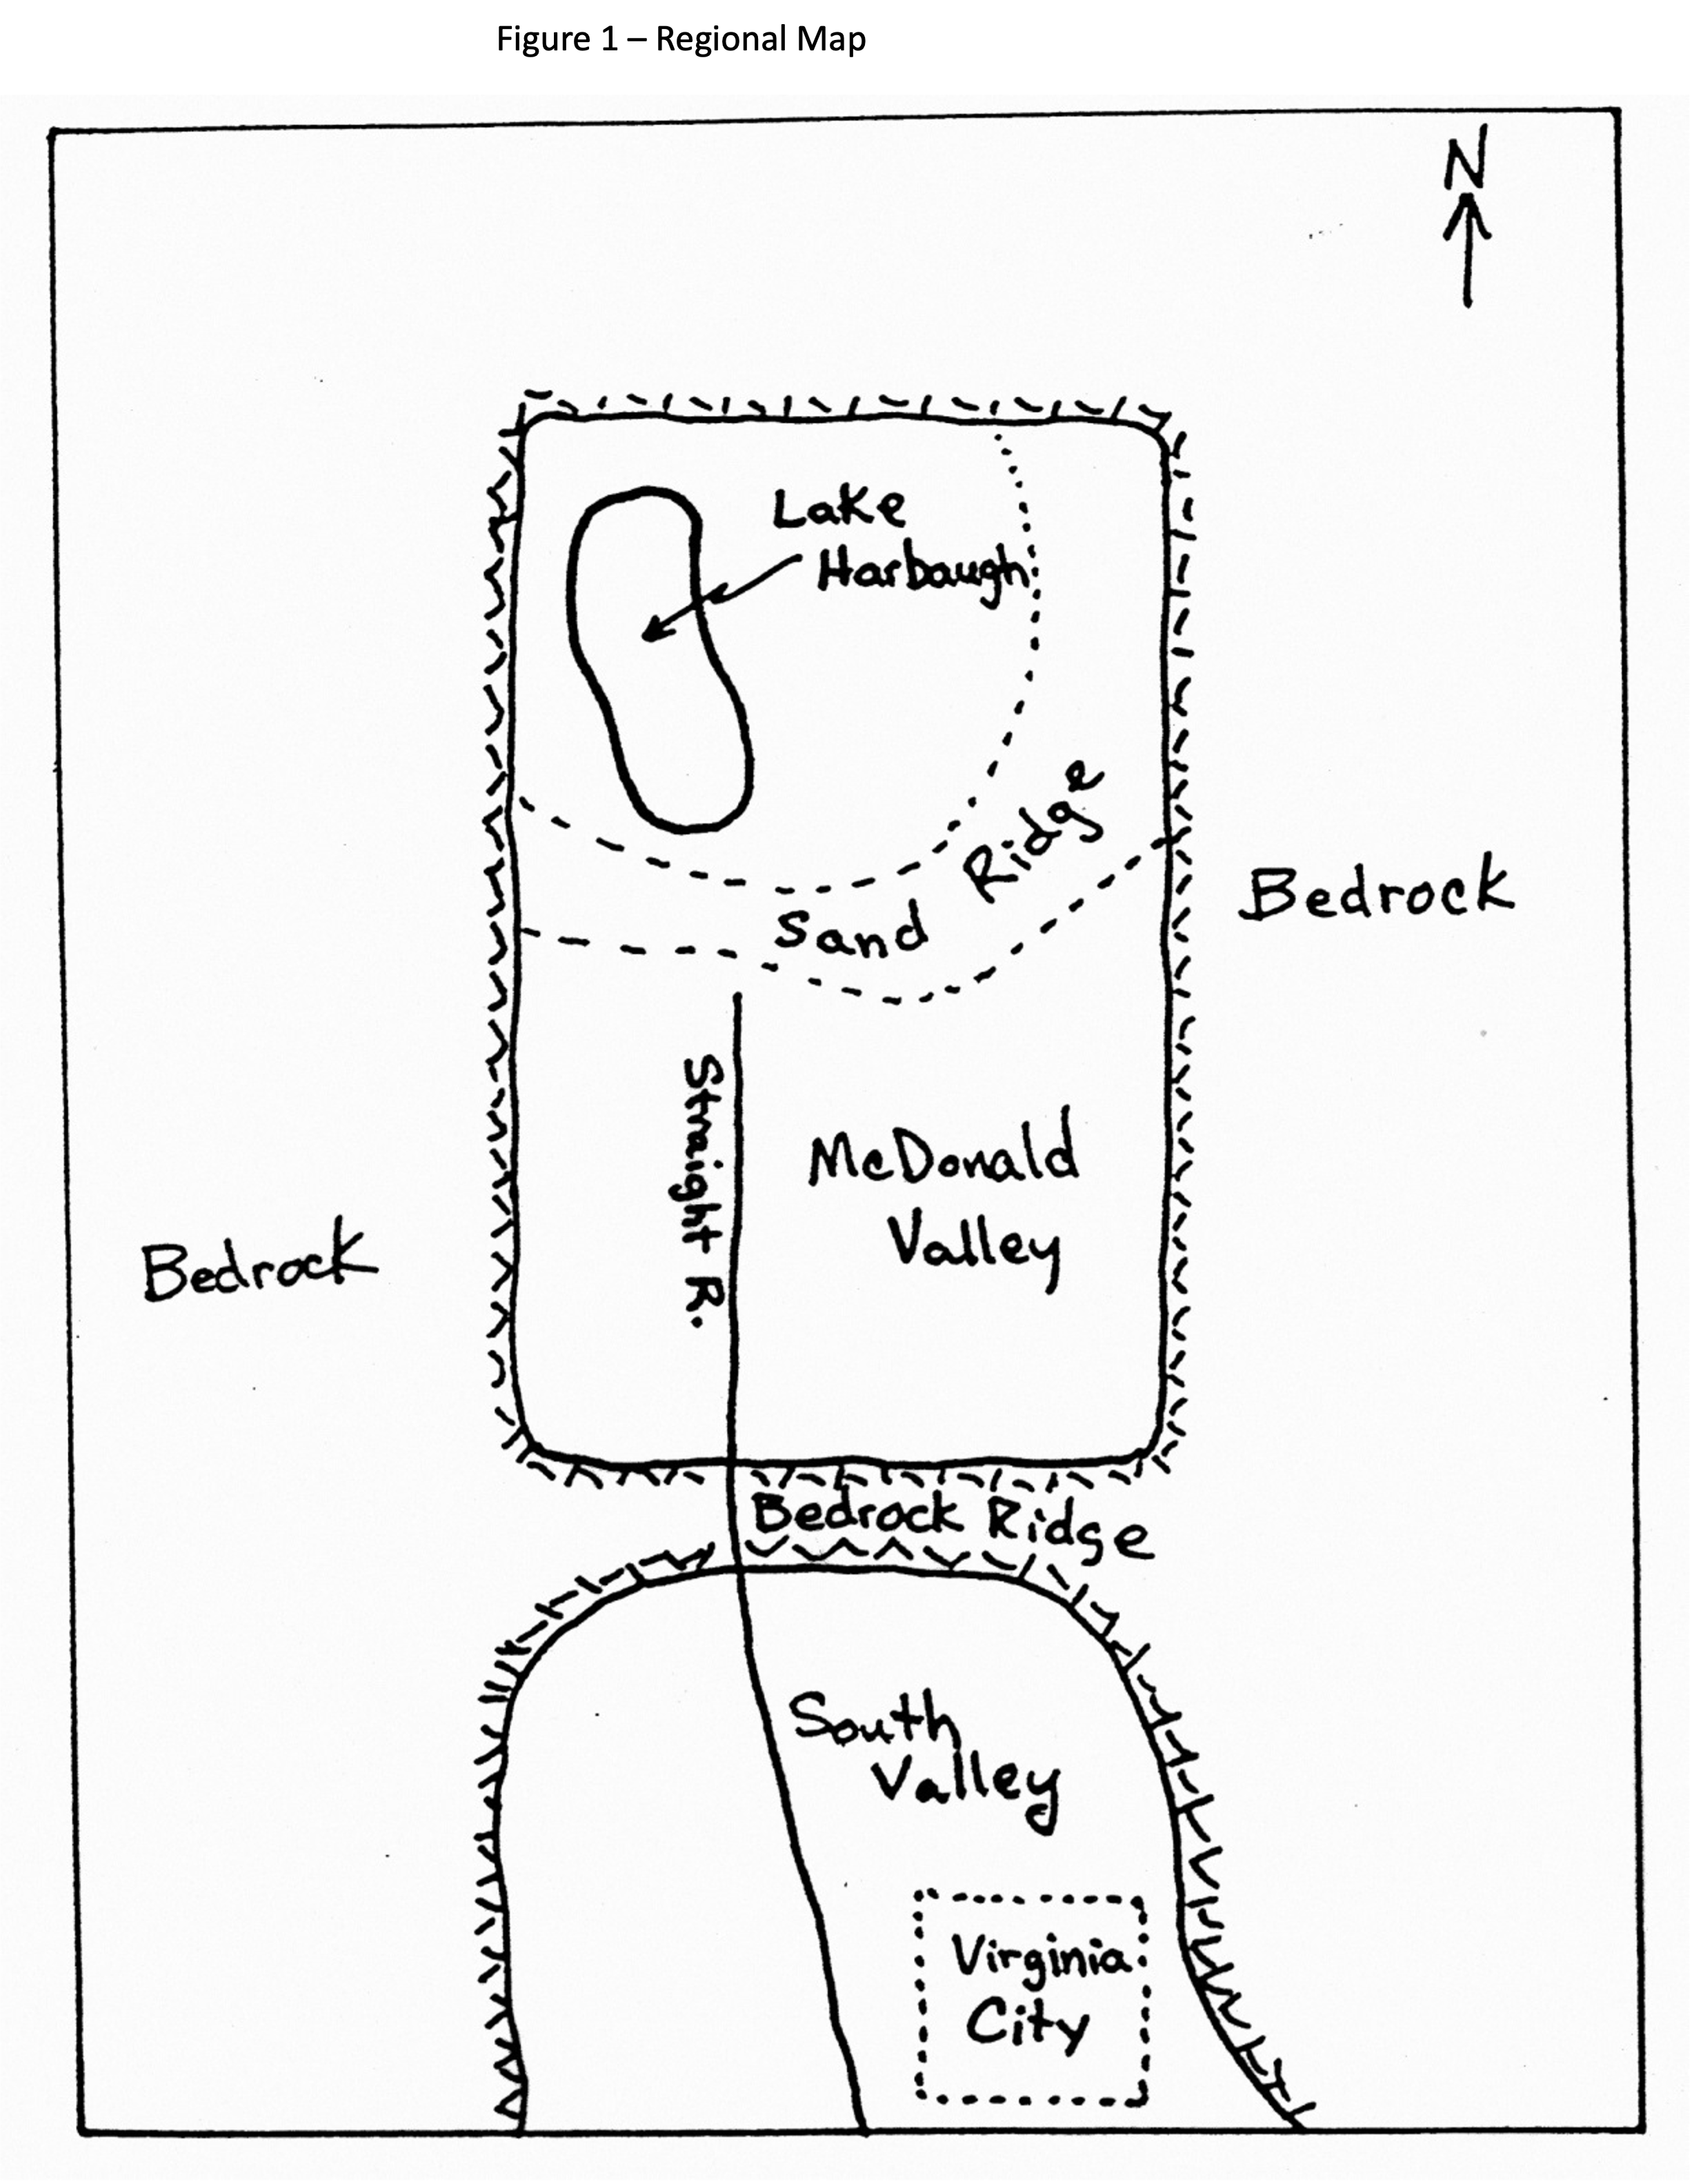 Figure 1 – Regional Map
N
Lake
Harbaugh
Sand Ridge
Bedrock
Straight R.
McDonald
Valley
Bedrock
Bedrock Ridge
South
Valley
Virginia
City